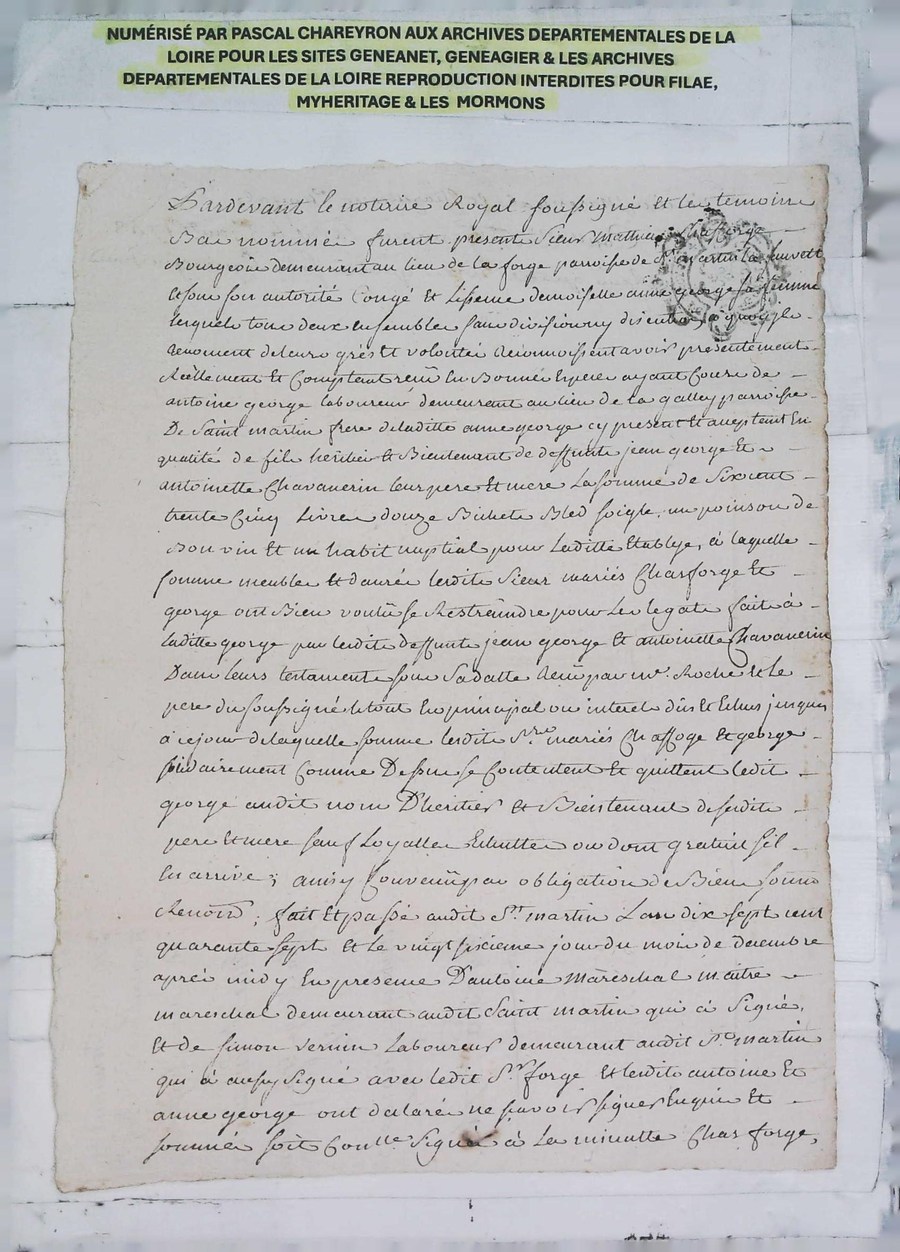 NUMÉRISÉ PAR PASCAL CHAREYRON AUX ARCHIVES DEPARTEMENTALES DE LA
LOIRE POUR LES SITES GENEANET, GENEAGIER & LES ARCHIVES
DEPARTEMENTALES DE LA LOIRE REPRODUCTION INTERDITES POUR FILAE,
MYHERITAGE & LES MORMONS
Pardevant le notaire Royal soussigné et les temoins
Bas nommés furent presents Sieur Mathieu
Bourgeois demeurant au lieu de la forge parroisse de St martin la
et sous son autorité Congé et Lissense demoiselle anne george sa femme
lesquels tous deux ensembles sans division ny discution
de leurs grés et volontés Reconnoissent avoir presentement
Réellement et Comptant reçû En Bonnes Especes ayant Cours de
antoine george laboureur demeurant au lieu de la galley parroisse
De Saint martin frere de laditte anne george cy present et acceptant En
qualité de fils heritier et Bientenant de deffunts jean george et
antoinette Chavanerin leurs pere et mere La somme de Six cent
trente Cinq Livres douze Bichets Bled soigle, un poinson de
Bon vin et un habit nuptial pour Laditte Etablye, à laquelle
somme meubles et danrés lesdits Sieur mariés Chasforge et
george ont Bien voulû se Restraindre pour Les legats faits à
laditte george par lesdits deffunts jean george et antoinette Chavanerin
Dans leurs testaments sous Sa datte Reçû par me. Roche et Le
pere du soussigné le tout En principal ou interets dûs et Echus jusques
à ce jour de laquelle somme lesdits Srs mariés Chaffoge et george
solidairement Comme Dessus se Contentent et quittent ledit
george audit nom D'heritier et Bientenant de sesdits
pere et mere sauf Loyalle Echutte ou dont gratuit s'il
En arrive; ainsy Convenû par obligation de Biens soumis
Renon; fait et passé audit St martin L'an dix sept cent
quarante sept et le vingt sixieme jour du mois de decembre
aprés midy En presence D'antoine Mareschal maitre
mareschal demeurant audit Saint martin qui à Signé,
Et de simon vernin Laboureur demeurant audit St martin
qui à aussy Signé avec ledit Sr forge et lesdits antoine Et
anne george ont declaré ne sçavoir signer Enquis et
sommés soit Conlle Signé à La minutte Chas forge,